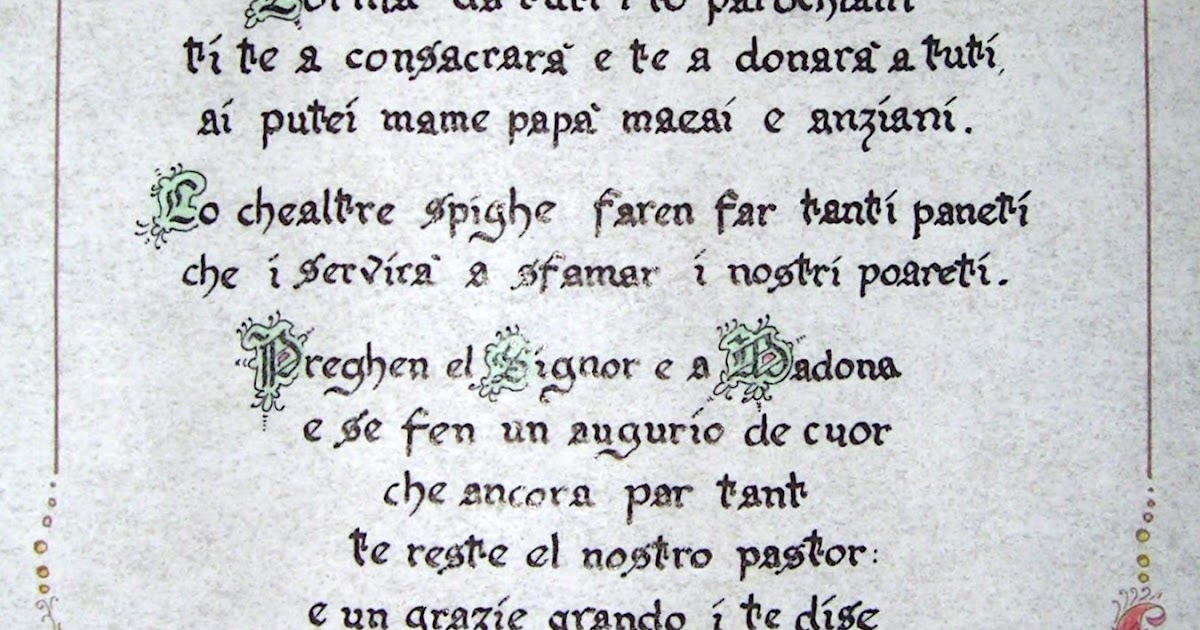 da tuti i to parochiani
ti te a consacrarà e te a donarà a tuti,
ai putei mame papà maeai e anziani.
Co chealtre spighe faren far tanti paneti
che i servirà a sfamar i nostri poareti.
Preghen el Signor e a Madona
e se fen un augurio de cuor
che ancora par tant
te reste el nostro pastor:
e un grazie grando i te dise